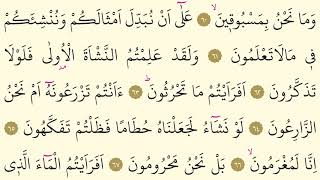 وَمَا نَحْنُ بِمَسْبُوق۪ينَۙ ﴿٦٠﴾ عَلٰٓى اَنْ نُبَدِّلَ اَمْثَالَكُمْ وَنُنْشِئَكُمْ
ف۪ي مَا لَا تَعْلَمُونَ ﴿٦١﴾ وَلَقَدْ عَلِمْتُمُ النَّشْاَةَ الْاُو۫لٰى فَلَوْلَا
تَذَكَّرُونَ ﴿٦٢﴾ اَفَرَاَيْتُمْ مَا تَحْرُثُونَۜ ﴿٦٣﴾ ءَاَنْتُمْ تَزْرَعُونَهُٓ اَمْ نَحْنُ
الزَّارِعُونَ ﴿٦٤﴾ لَوْ نَشَٓاءُ لَجَعَلْنَاهُ حُطَامًا فَظَلْتُمْ تَفَكَّهُونَ ﴿٦٥﴾
اِنَّا لَمُغْرَمُونَۙ ﴿٦٦﴾ بَلْ نَحْنُ مَحْرُومُونَ ﴿٦٧﴾ اَفَرَاَيْتُمُ الْمَٓاءَ الَّذ۪ي